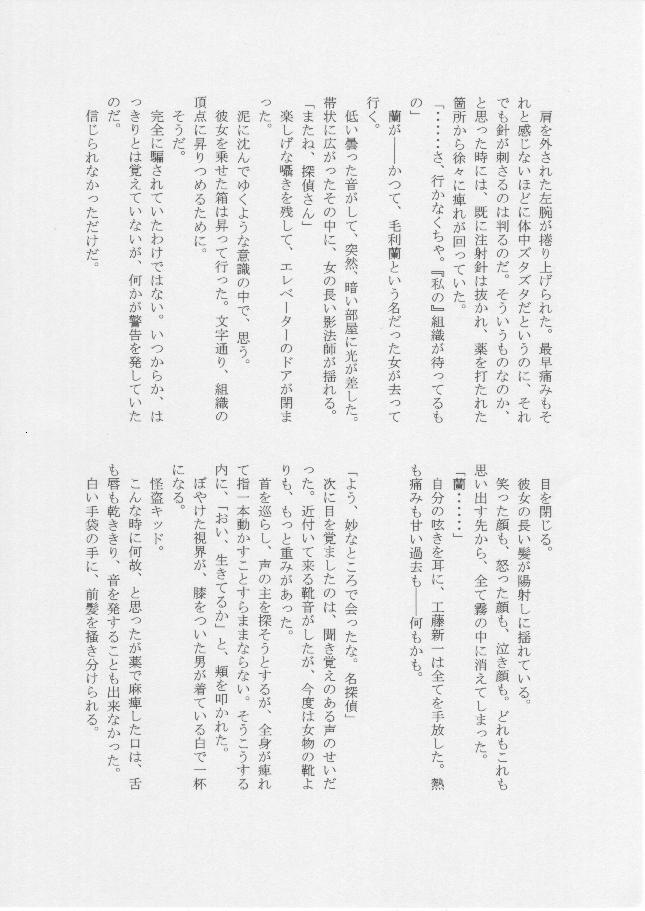 肩を外された左腕が捲り上げられた。最早痛みもそ
れと感じないほどに体中ズタズタだというのに、それ
でも針が刺さるのは判るのだ。そういうものなのか、
と思った時には、既に注射針は抜かれ、薬を打たれた
箇所から徐々に痺れが回っていた。
「・・・・さ、行かなくちゃ。『私の』組織が待ってるも
の」
　蘭が――かつて、毛利蘭という名だった女が去って
行く。
　低い曇った音がして、突然、暗い部屋に光が差した。
帯状に広がったその中に、女の長い影法師が揺れる。
「またね、探偵さん」
　楽しげな囁きを残して、エレベーターのドアが閉ま
った。
　泥に沈んでゆくような意識の中で、思う。
　彼女を乗せた箱は昇って行った。文字通り、組織の
頂点に昇りつめるために。
　そうだ。
　完全に騙されていたわけではない。いつからか、は
っきりとは覚えていないが、何かが警告を発していた
のだ。
　信じられなかっただけだ。
　目を閉じる。
　彼女の長い髪が陽射しに揺れている。
　笑った顔も、怒った顔も、泣き顔も。どれもこれも
思い出す先から、全て霧の中に消えてしまった。
「蘭・・・・・」
　自分の呟きを耳に、工藤新一は全てを手放した。熱
も痛みも甘い過去も――何もかも。
「よう、妙なところで会ったな。名探偵」
　次に目を覚ましたのは、聞き覚えのある声のせいだ
った。近付いて来る靴音がしたが、今度は女物の靴よ
りも、もっと重みがあった。
　首を巡らし、声の主を探そうとするが、全身が痺れ
て指一本動かすことすらままならない。そうこうする
内に、「おい、生きてるか」と、頬を叩かれた。
　ぼやけた視界が、膝をついた男が着ている白で一杯
になる。
　怪盗キッド。
　こんな時に何故、と思ったが薬で麻痺した口は、舌
も唇も乾ききり、音を発することも出来なかった。
　白い手袋の手に、前髪を掻き分けられる。